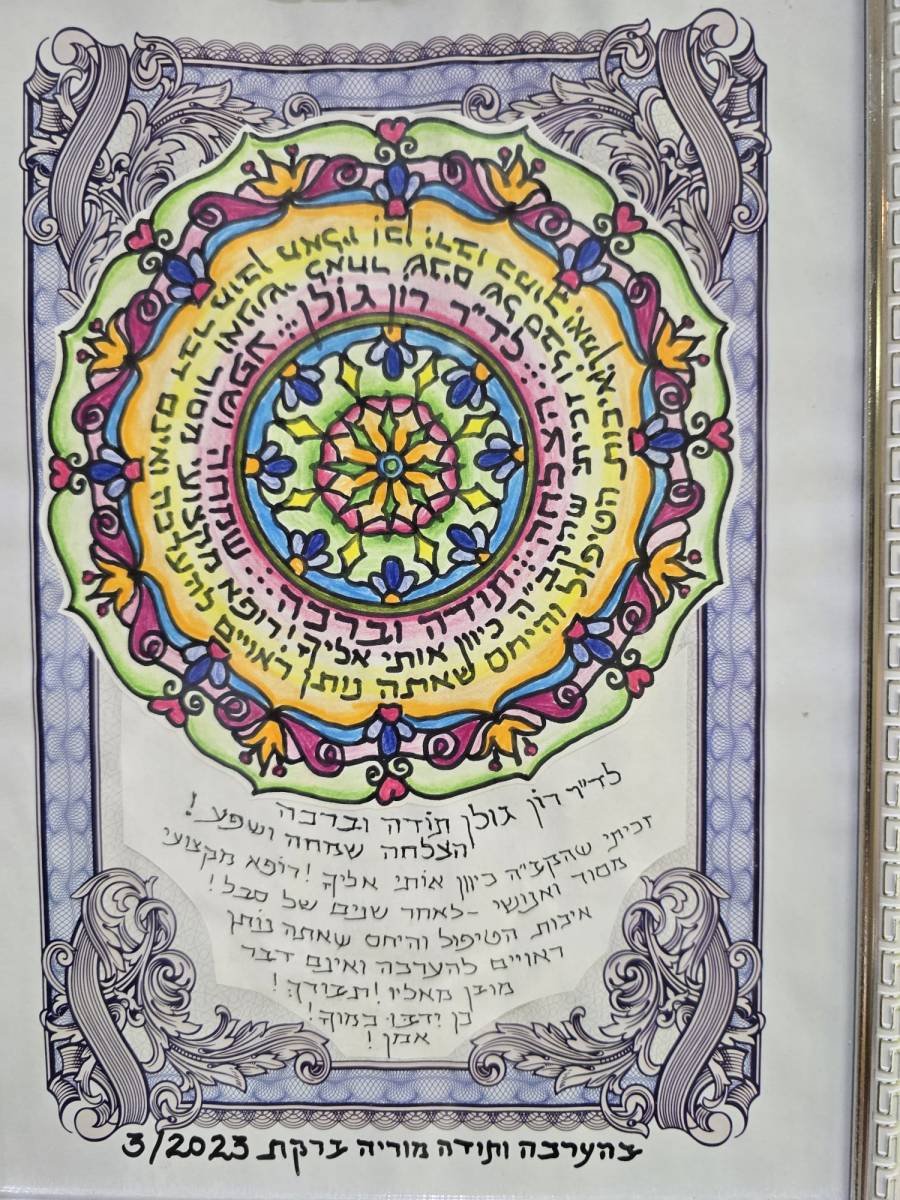 לד"ר רון גולן ... בהצלחה ... תודה וברכה ... שמחה ושפע ...
זכיתי שהקב"ה כיוון אותי אליך! רופא מקצועי מסור ואנושי לאחר שנים של סבל!
איכות הטיפול והיחס שאתה נותן ראויים להערכה ואינם דבר מובן מאליו! כן ירבו כמוך! אמן!
לד"ר רון גולן תודה וברכה
הצלחה שמחה ושפע!
זכיתי שהקב"ה כיוון אותי אליך! רופא מקצועי
מסור ואנושי - לאחר שנים של סבל!
איכות הטיפול והיחס שאתה נותן
ראויים להערכה ואינם דבר
מובן מאליו! תבורך!
כן ירבו כמוך!
אמן!
בהערכה ותודה מוריה ברקת 3/2023